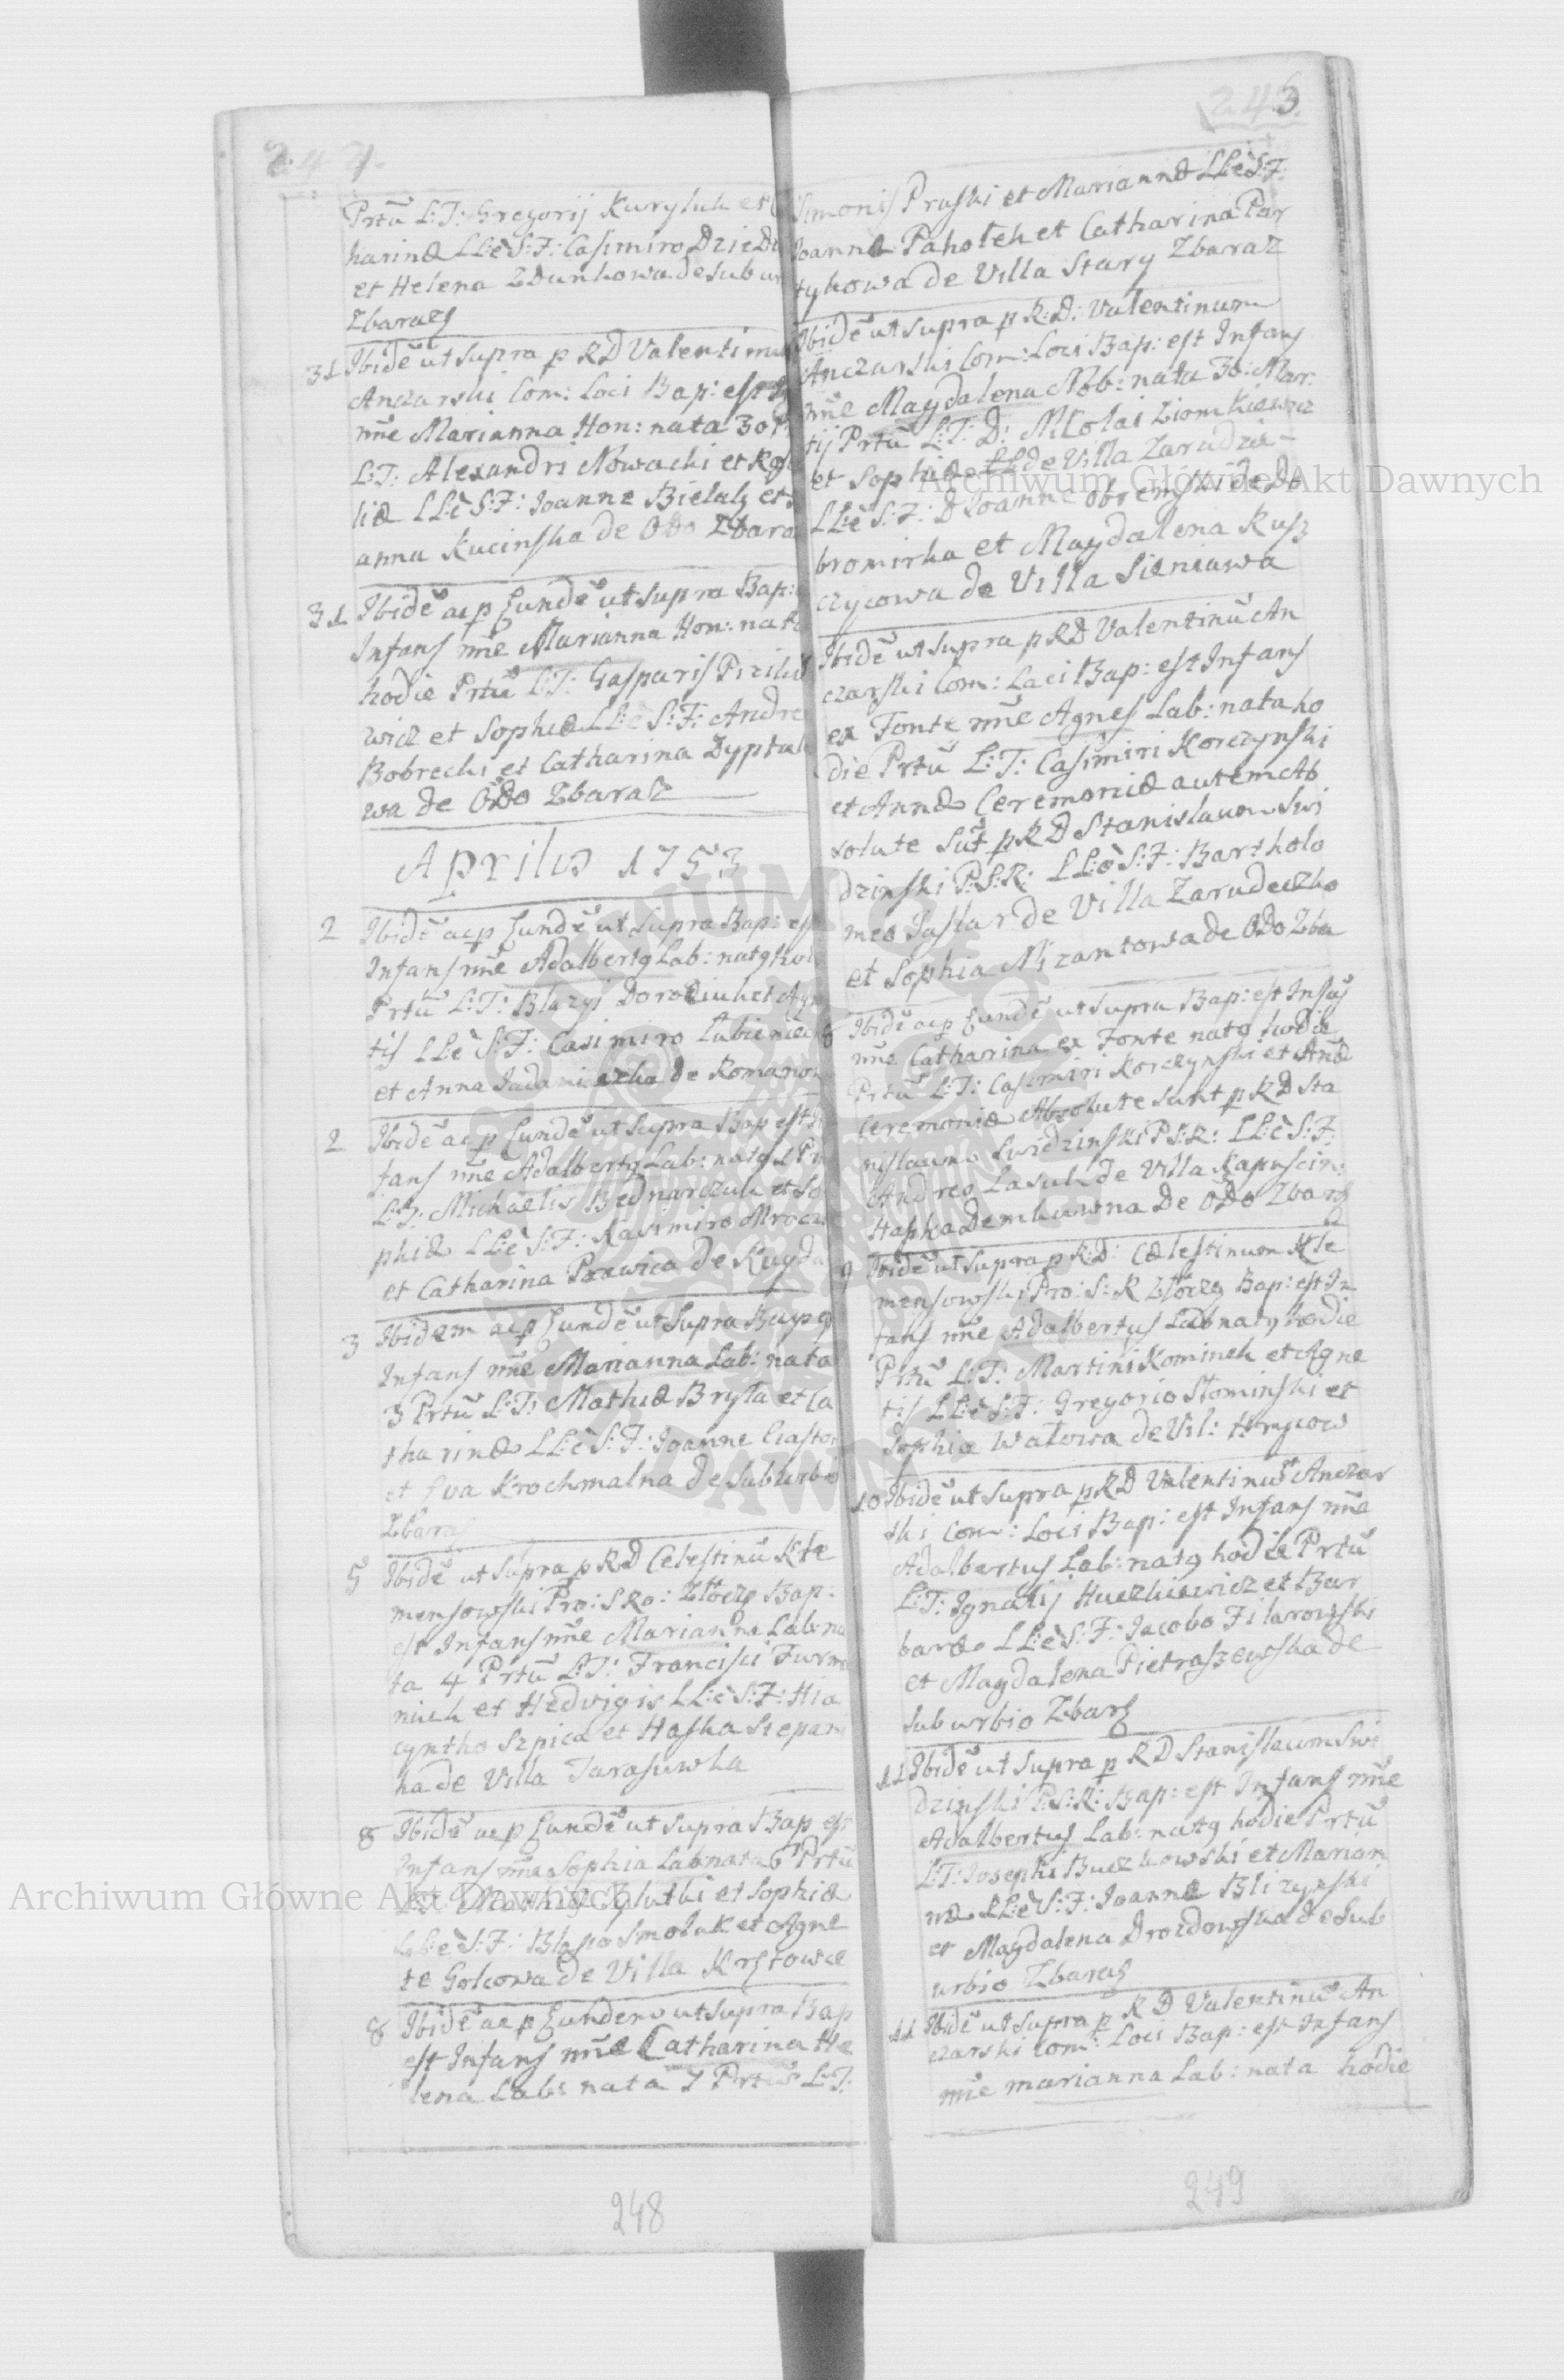 247.
Prtũ L:T: Gregorij Kuryluk et C
harinæ LLè S:F: Casimiro Dziedz
et Helena Zdunkowa de Subur
Zbaraz
31 Ibidẽ ut Supra p RD Valentinu
Anczarski Com: Loci Bap: est
nñe Marianna Hon: nata 30
L:T: Alexandri Nowacki et Rosa
liæ LLè S:F: Joanne Bielak et
anna Kucinska de Odo Zbara
31 Ibidẽ ac p Eundẽ ut Supra Bap:
Infans nñe Marianna Hon: nata
hodie Prtũ L:T: Gasparis
wicz et Sophiæ LLè S:F: Andre
Bobrecki et Catharina Dyptul
wa de Odo Zbaraz
Aprilis 1753
2 Ibidẽ ac p Eundẽ ut Supra Bap: est
Infans nñe Adalbertg Lab: natg hod
Prtũ L:T: Blazyi Dorociuk et Agn
tis LLè S:F: Casimiro Lubieniec
et Anna de Romanow
2 Ibidẽ ac p Eundẽ ut Supra Bap est In
fans nñe Adalbertg Lab: natg 1 Pr
L:T: Michaelis Bednarczuk et So
phiæ LLè S:F: Kasimiro Mrocz
et Catharina Prawica de Kuyda
3 Ibidem ac p Eundẽ ut Supra Bap e
Infans nñe Marianna Lab: nata
3 Prtũ L:T: Mathiæ Bryla et Ca
tharinæ LLè S:F: Joanne Ciasto
et Eva Krochmalna de Suburbio
Zbaraz
5 Ibidẽ ut Supra p RD Celestinũ Kle
mensowski Pro: S Ro: Bap:
est Infans nñe Marianna Lab: na
ta 4 Prtũ L:T: Francisci Furma
niuk et Hedvigis LLè S:F: Hia
cyntho Szpica et Haska Stepani
ha de Villa Tarasuwka
8 Ibidẽ ac p Eundẽ ut Supra Bap est
Infans nñe Sophia Lab: nata 6 Prtũ
L:T: Mathiæ et Sophiæ
LLè S:F: Blasio Smoluk et Agne
te Golcowa de Villa Krstowce
8 Ibidẽ ac p Eundem ut Supra Bap
est Infans nñe Catharina He
lena Lab: nata 7 Prtũ L:T:
248
243.
Simonis Pruski et Mariannæ LLè S:F:
Joanne Paholek et Catharina Par
tykowa de Villa Stary Zbaraz
Ibidẽ ut Supra p R:D: Valentinum
Anczarski Com: Loci Bap: est Infans
nñe Magdalena Nob: nata 30: Mar:
tij Prtũ L:T: D: Nicolai Ziomkiewicz
et Sophiæ de Villa Zarudzie
LLè S:F: D Joanne Obremski de Do
bromirka et Magdalena Rusz
czycowa de Villa Sieniawa
Ibidẽ ut Supra p RD Valentinũ An
czarski Com: Loci Bap: est Infans
ex Fonte nñe Agnes Lab: nata ho
die Prtũ L:T: Casimiri Korczynski
et Annæ Ceremoniæ autem Ab
solute Sũt p RD Stanislaum Swi
dzinski P:S:R: LLè S:F: Bartholo
meo Juskar de Villa Zarudeczko
et Sophia Mizantowa de Odo Zba
8 Ibidẽ ac p Eundẽ ut Supra Bap: est Infãs
nñe Catharina ex Fonte natg hodie
Prtũ L:T: Casimiri Korczynski et Annæ
Ceremoniæ Absolute sunt p RD Sta
nislaum Swidzinski P:S:R: LLè S:F:
Andreo Lasuk de Villa Kapuscin:
Haska Demkuwna de Odo Zbarz
9 Ibidẽ ut Supra p R:D: Cælestinum Kle
mensowski Pro: S: R Bap: est In
fans nñe Adalbertus Lab natg hodie
Prtũ L:T: Martini Kominek et Agne
tis LLè S:F: Gregorio Slominski et
Sophia Walowa de Vil: Hrycow
10 Ibidẽ ut Supra p RD Valentinũ Anczar
ski Com: Loci Bap: est Infans nñe
Adalbertus Lab: natg hodie Prtũ
L:T: Ignatij Huczkiewicz et Bar
baræ LLè S:F: Jacobo Filarowski
et Magdalena Pietraszewska de
Suburbio Zbarz
11 Ibidẽ ut Supra p RD Stanislaum Swi
dzinski P:S:R: Bap: est Infans nñe
Adalbertus Lab: natg hodie Prtũ
L:T: Josephi Buczkowski et Marian
næ LLè S:F: Joanne Blizynski
et Magdalena Drozdowska de Sub
urbio Zbaraz
11 Ibidẽ ut Supra p RD Valentinũ An
czarski Com: Loci Bap: est Infans
nñe marianna Lab: nata hodie
249
Archiwum Główne Akt Dawnych
Archiwum Główne Akt Dawnych